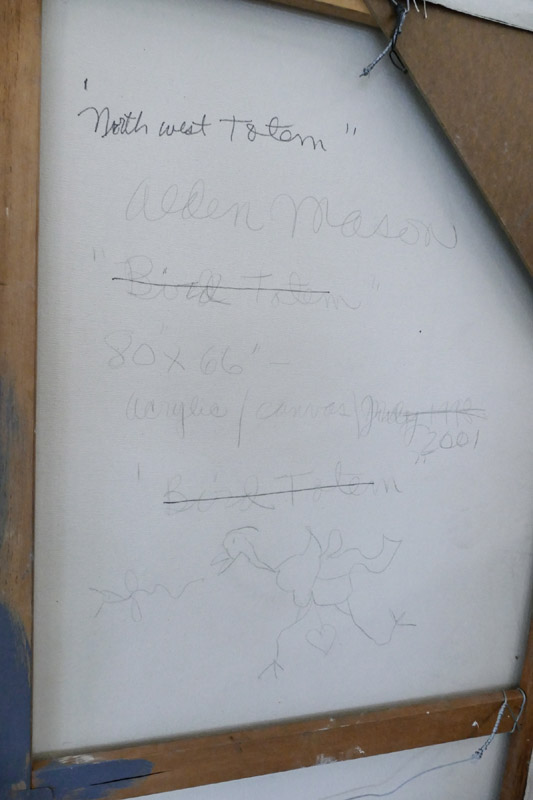 "North west Totem"
Alden Mason
"Bird Totem"
80" x 66" -
acrylic / canvas / July
2001
"Bird Totem